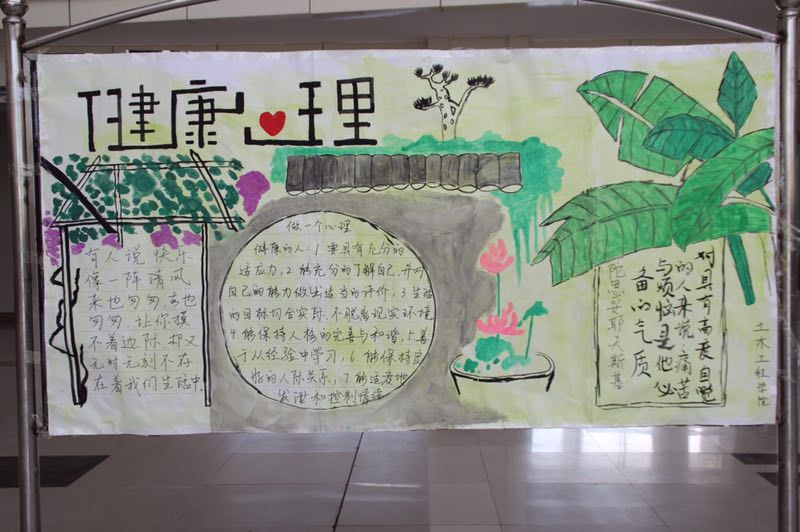 健康心理
有人说快乐
像一阵清风
来也匆匆,去也
匆匆,让你摸
不着边际,却又
无时无刻不存
在着我们生活中
做一个心理
健康的人:1.要具有充分的
适应力;2.能充分的了解自己,并对
自己的能力做出适当的评价;3.生活
的目标切合实际;不脱离现实环境
4.能保持人格的完善与和谐;5.善
于从经验中学习;6.能保持良
好的人际关系;7.能适度地
发泄和控制情绪
对具有高度自觉
的人来说,痛苦
与烦恼是他必
备的气质
陀思妥耶夫斯基
土木工程学院